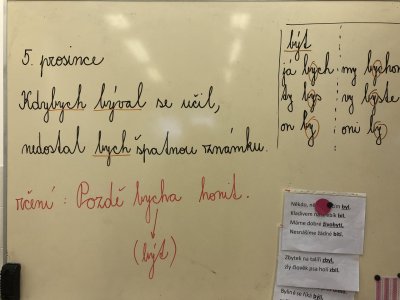 5. prosince
Kdybych býval se učil,
nedostal bych špatnou známku.
rčení: Pozdě bycha honit.
(být)
být
já bych my bychom
ty bys vy byste
on by oni by
byl.
Kladivem bil.
Máme dobré živobytí,
Nesnášíme žádné bití.
Zbytek na talíři zbyl,
zlý člověk psa holí zbil.
Bylině se říká býlí,